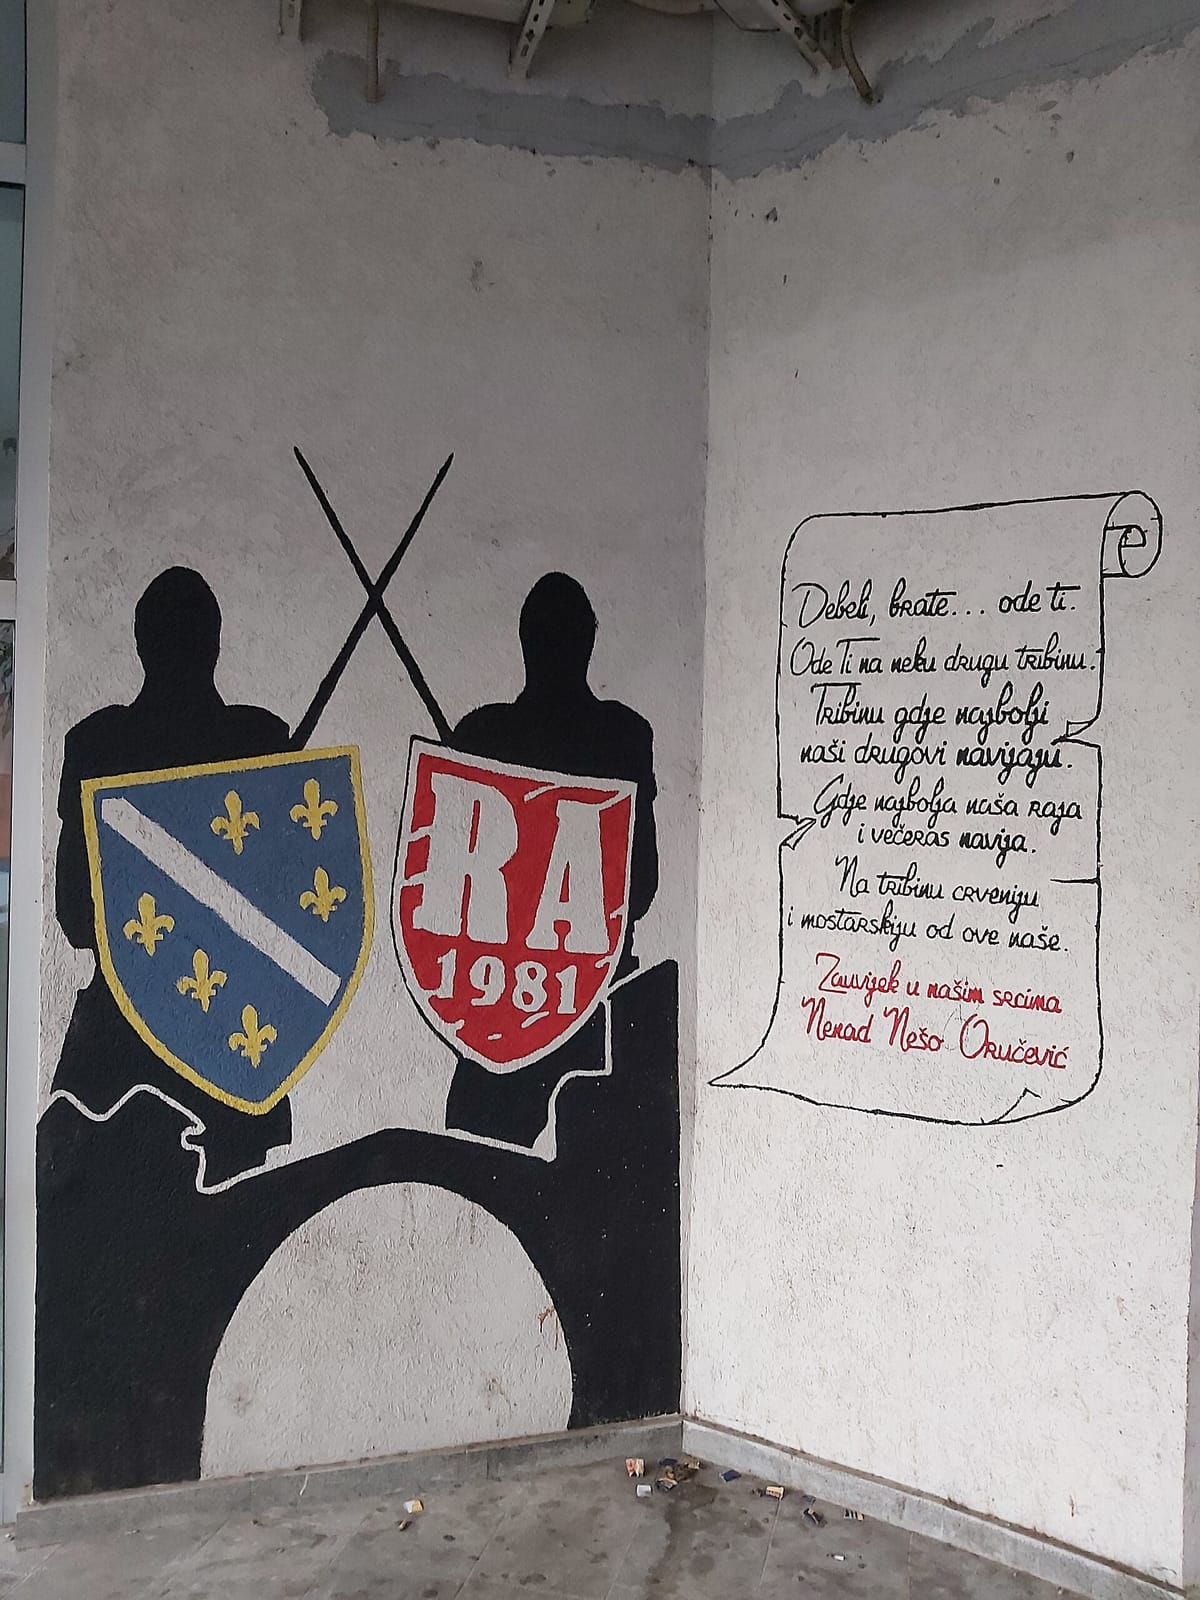 RA
1981
Debeli, brate... ode ti.
Ode Ti na neku drugu tribinu.
Tribinu gdje najbolji
naši drugovi navijaju.
Gdje najbolja naša raja
i večeras navija.
Na tribinu crveniju
i mostarskiju od ove naše.
Zauvijek u našim srcima
Nenad Nešo Oručević